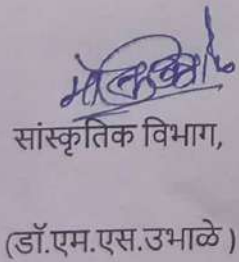 सांस्कृतिक विभाग,
(डॉ.एम.एस.उभाळे )